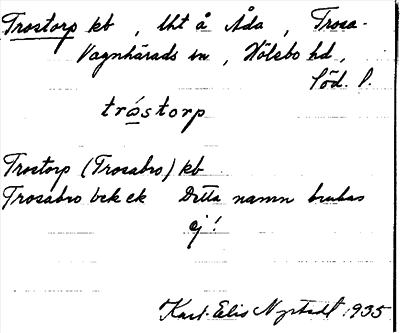 Trostorp kb , Uht å Åda , Trosa-
Vagnhärads sn , Hölebo hd ,
Söd. l.
tróstorp
Trostorp (Trosabro) kb
Trosabro bek ek Detta namn brukas
ej!
Karl-Elis Nystedt 1935